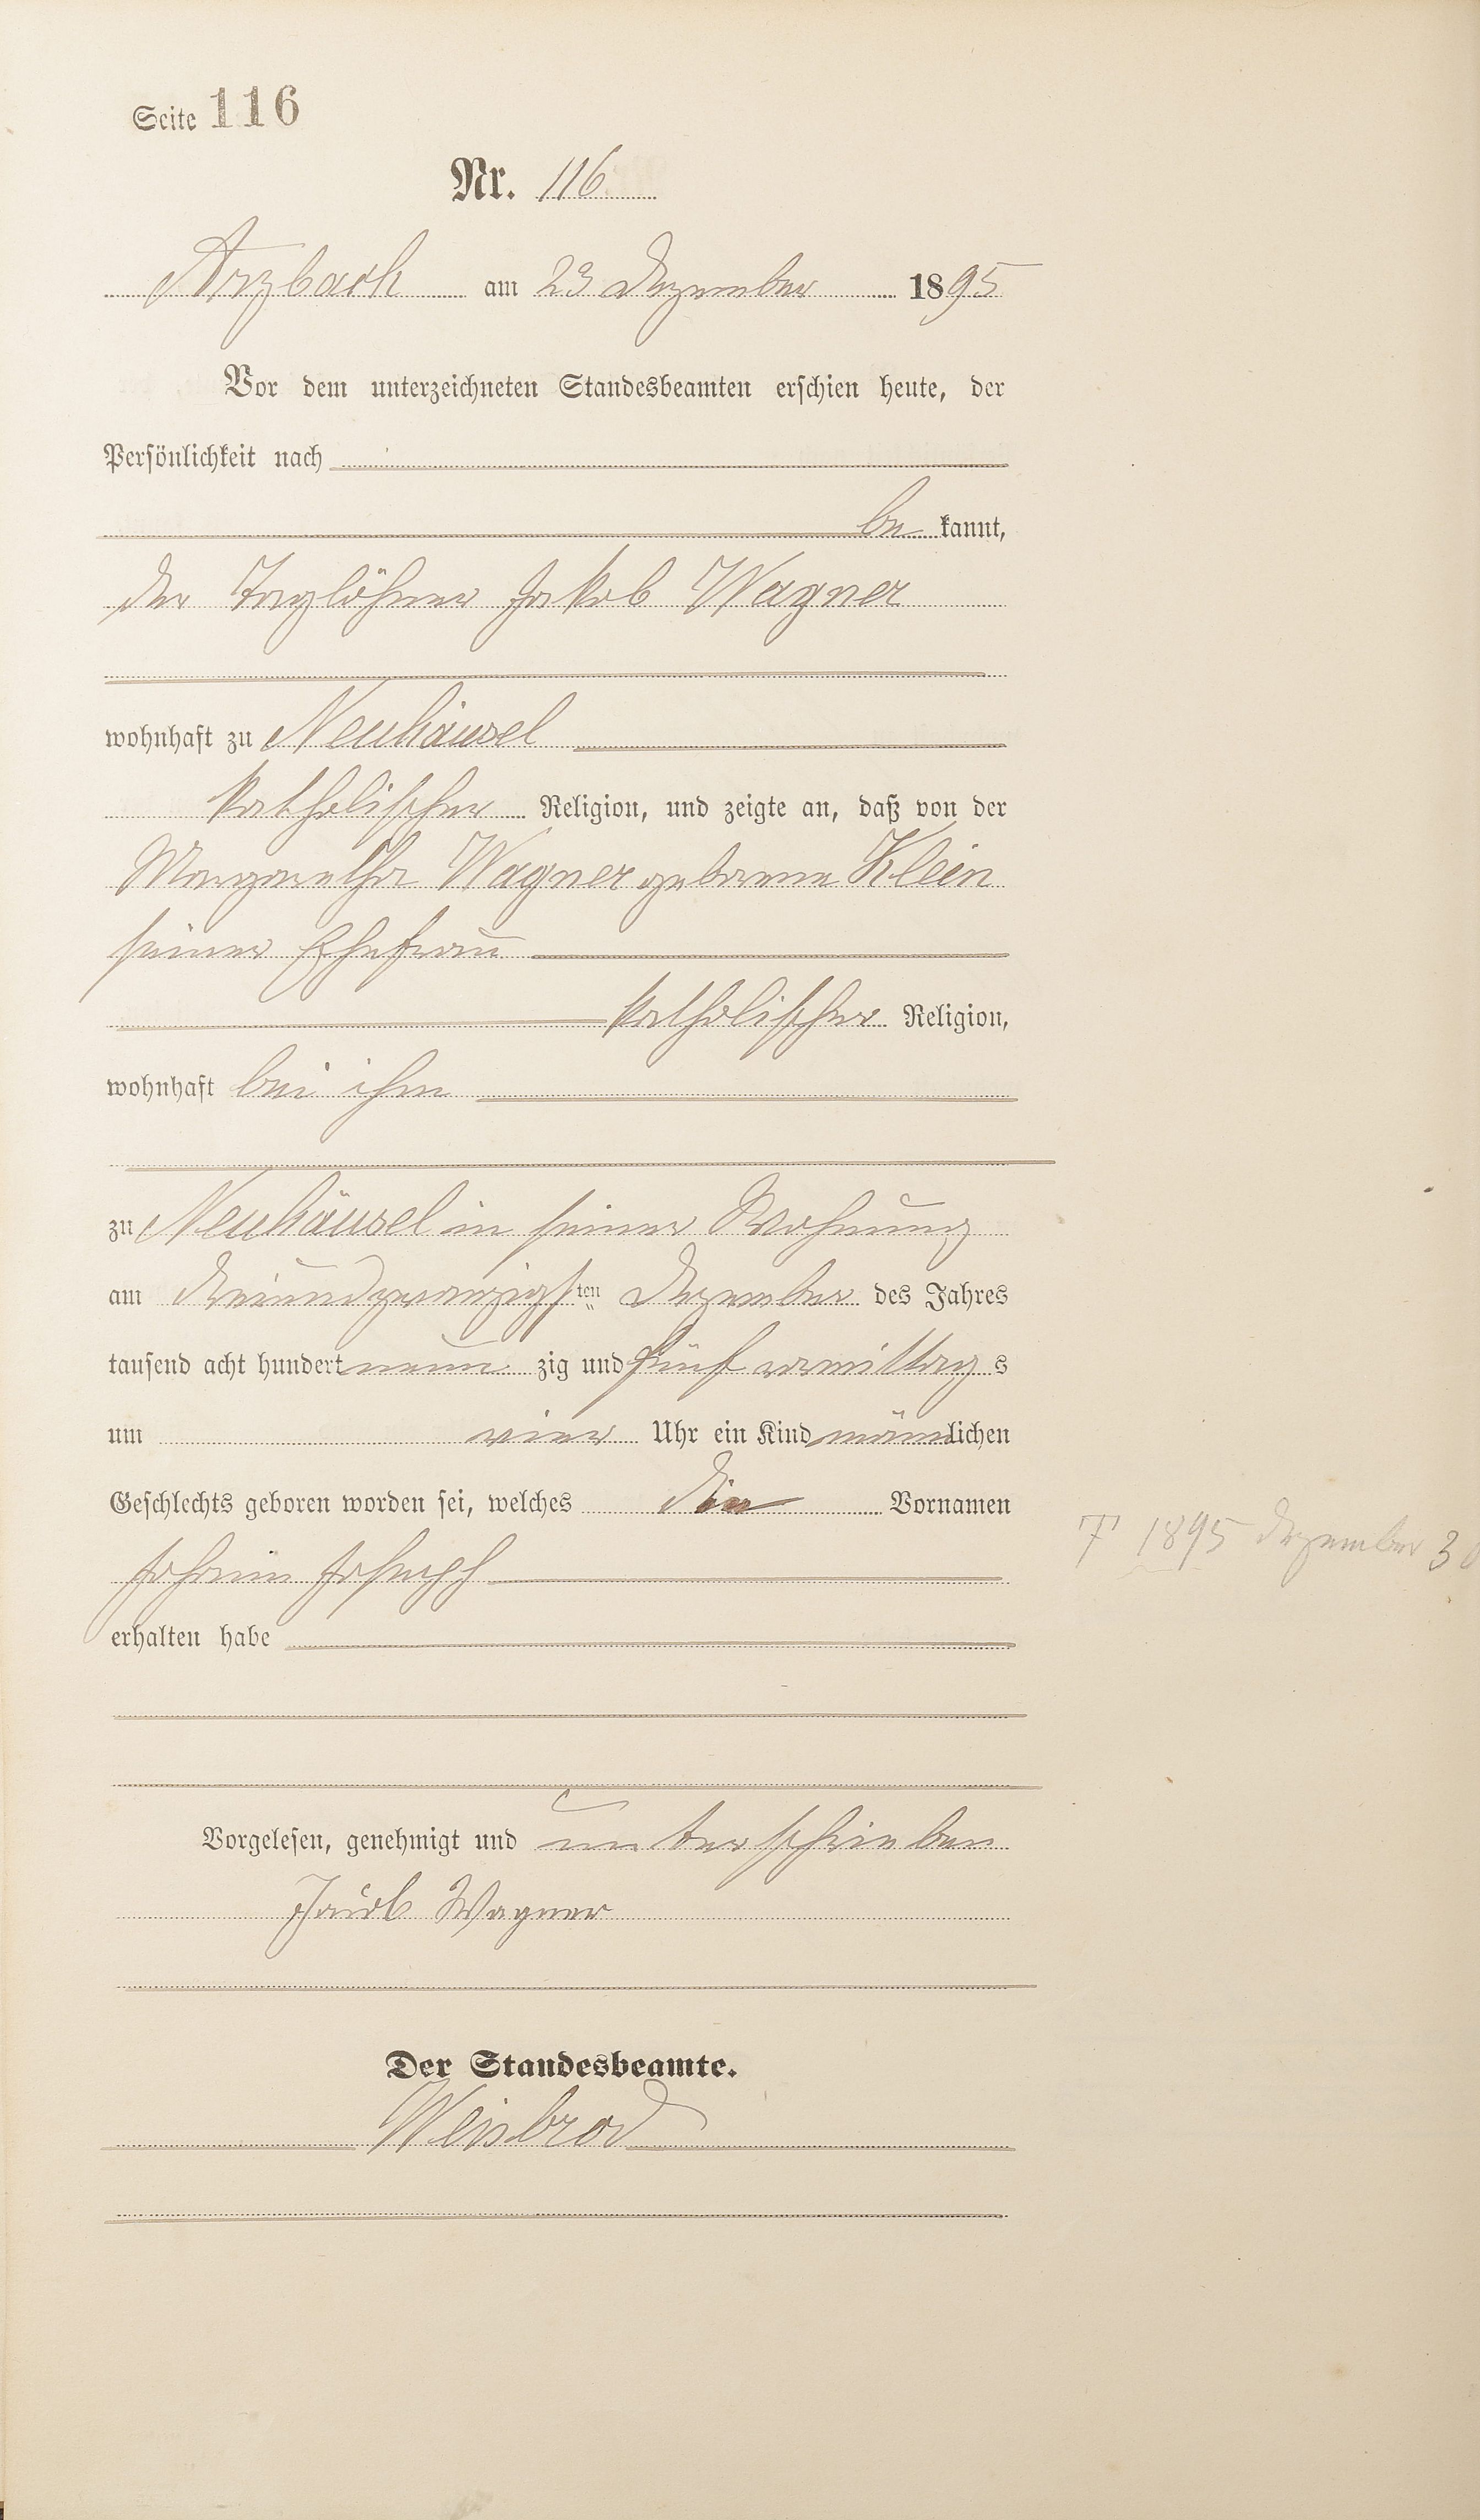 Seite 116
Nr. 116
Arzbach am 23 Dezember 1895
Vor dem unterzeichneten Standesbeamten erschien heute, der
Persönlichkeit nach
be kannt,
der Taglöhner Jakob Wagner
wohnhaft zu Neuhäusel
katholischer Religion, und zeigte an, daß von der
Margaretha Wagner geborene Klein
seiner Ehefrau
katholischer Religion,
wohnhaft bei ihm
zu Neuhäusel in seiner Wohnung
am dreiundzwanzigsten Dezember des Jahres
tausend acht hundert neun zig und fünf vormittags
um vier Uhr ein Kind männlichen
Geschlechts geboren worden sei, welches die Vornamen
† 1895 Dezember 30
Johann Joseph
erhalten habe
Vorgelesen, genehmigt und unterschrieben
Jacob Wagner
Der Standesbeamte.
Weisbrod